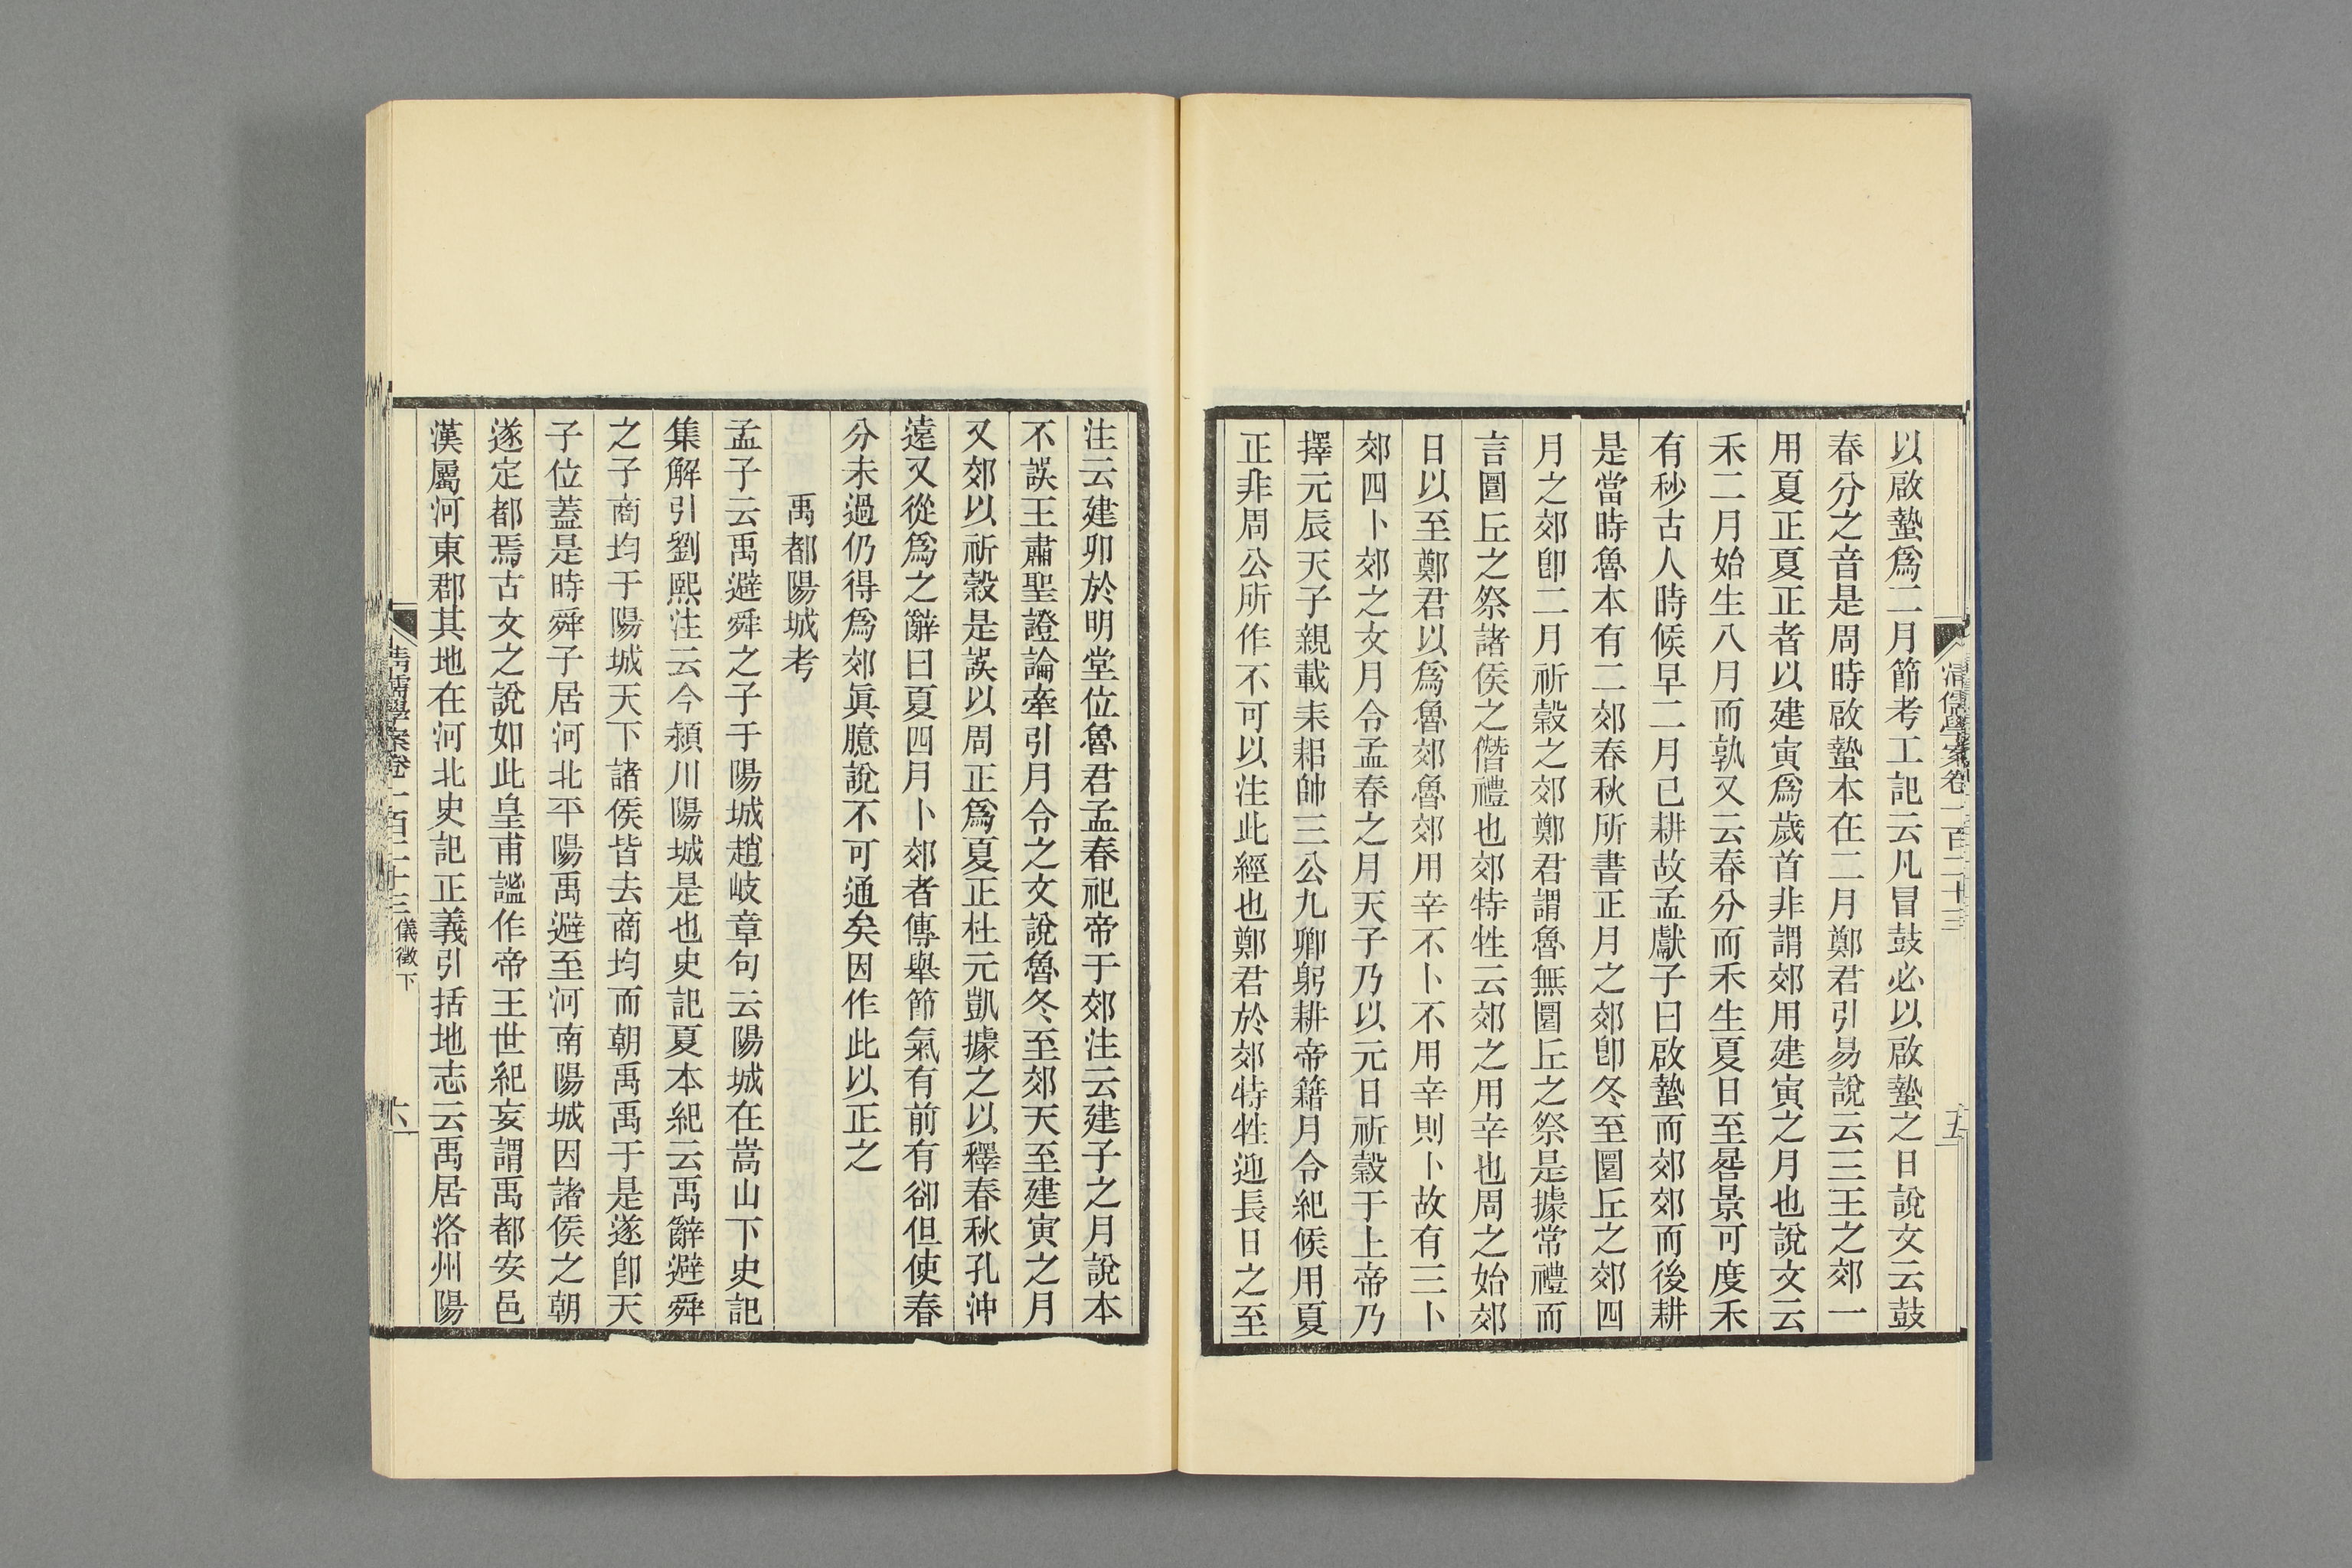 清儒學案卷一百二十三
五
以啟蟄爲二月節考工記云凡冒鼓必以啟蟄之日說文云鼓
春分之音是周時啟蟄本在二月鄭君引易說云三王之郊一
用夏正夏正者以建寅爲歲首非謂郊用建寅之月也說文云
禾二月始生八月而孰又云春分而禾生夏日至晷景可度禾
有秒古人時候早二月已耕故孟獻子曰啟蟄而郊郊而後耕
是當時魯本有二郊春秋所書正月之郊卽冬至圜丘之郊四
月之郊卽二月祈穀之郊鄭君謂魯無圜丘之祭是據常禮而
言圜丘之祭諸侯之僭禮也郊特牲云郊之用辛也周之始郊
日以至鄭君以爲魯郊魯郊用辛不卜不用辛則卜故有三卜
郊四卜郊之文月令孟春之月天子乃以元日祈穀于上帝乃
擇元辰天子親載耒耜帥三公九卿躬耕帝籍月令紀候用夏
正非周公所作不可以注此經也鄭君於郊特牲迎長日之至
注云建卯於明堂位魯君孟春祀帝于郊注云建子之月說本
不誤王肅聖證論牽引月令之文說魯冬至郊天至建寅之月
又郊以祈穀是誤以周正爲夏正杜元凱據之以釋春秋孔沖
遠又從爲之辭曰夏四月卜郊者傳舉節氣有前有卻但使春
分未過仍得爲郊眞臆說不可通矣因作此以正之
禹都陽城考
孟子云禹避舜之子于陽城趙岐章句云陽城在嵩山下史記
集解引劉熙注云今潁川陽城是也史記夏本紀云禹辭避舜
之子商均于陽城天下諸侯皆去商均而朝禹禹于是遂卽天
子位蓋是時舜子居河北平陽禹避至河南陽城因諸侯之朝
遂定都焉古文之說如此皇甫謐作帝王世紀妄謂禹都安邑
漢屬河東郡其地在河北史記正義引括地志云禹居洛州陽
清儒學案卷一百二十三 儀徵下
六